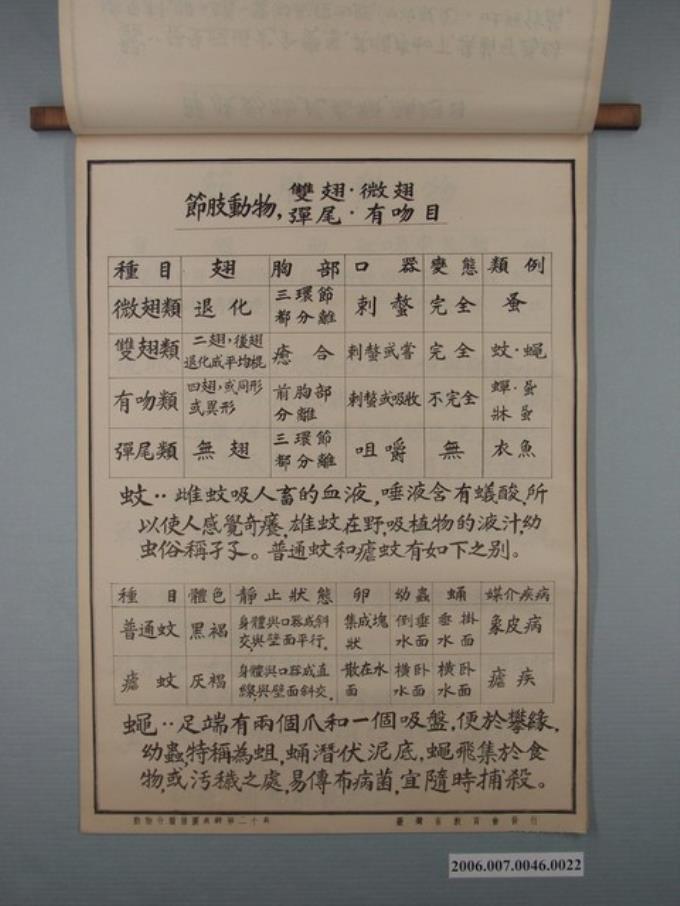 節肢動物, 雙翅·微翅
彈尾·有吻目
種目 翅 胸部 口器 變態 類例
微翅類 退化 三環節都分離 刺螫 完全 蚤
雙翅類 二翅,後翅退化成平均棍 癒合 刺螫或嘗 完全 蚊·蠅
有吻類 四翅,或同形或異形 前胸部分離 刺螫或吸收 不完全 蟬·蚤 牀蚤
彈尾類 無翅 三環節都分離 咀嚼 無 衣魚
蚊‥雌蚊吸人畜的血液,唾液含有蟻酸,所
以使人感覺奇癢,雄蚊在野,吸植物的液汁,幼
虫俗稱孑孓。普通蚊和瘧蚊有如下之別。
種目 體色 靜止狀態 卵 幼蟲 蛹 媒介疾病
普通蚊 黑褐 身體與口器成斜交,與壁面平行. 集成塊狀 倒垂水面 垂掛水面 象皮病
瘧蚊 灰褐 身體與口器成直線,與壁面斜交. 散在水面 橫臥水面 橫臥水面 瘧疾
蠅‥足端有兩個爪和一個吸盤,便於攀緣,
幼蟲,特稱為蛆,蛹潛伏泥底,蠅飛集於食
物,或汚穢之處,易傳布病菌,宜隨時捕殺。
臺灣省教育會發行
2006.007.0046.0022